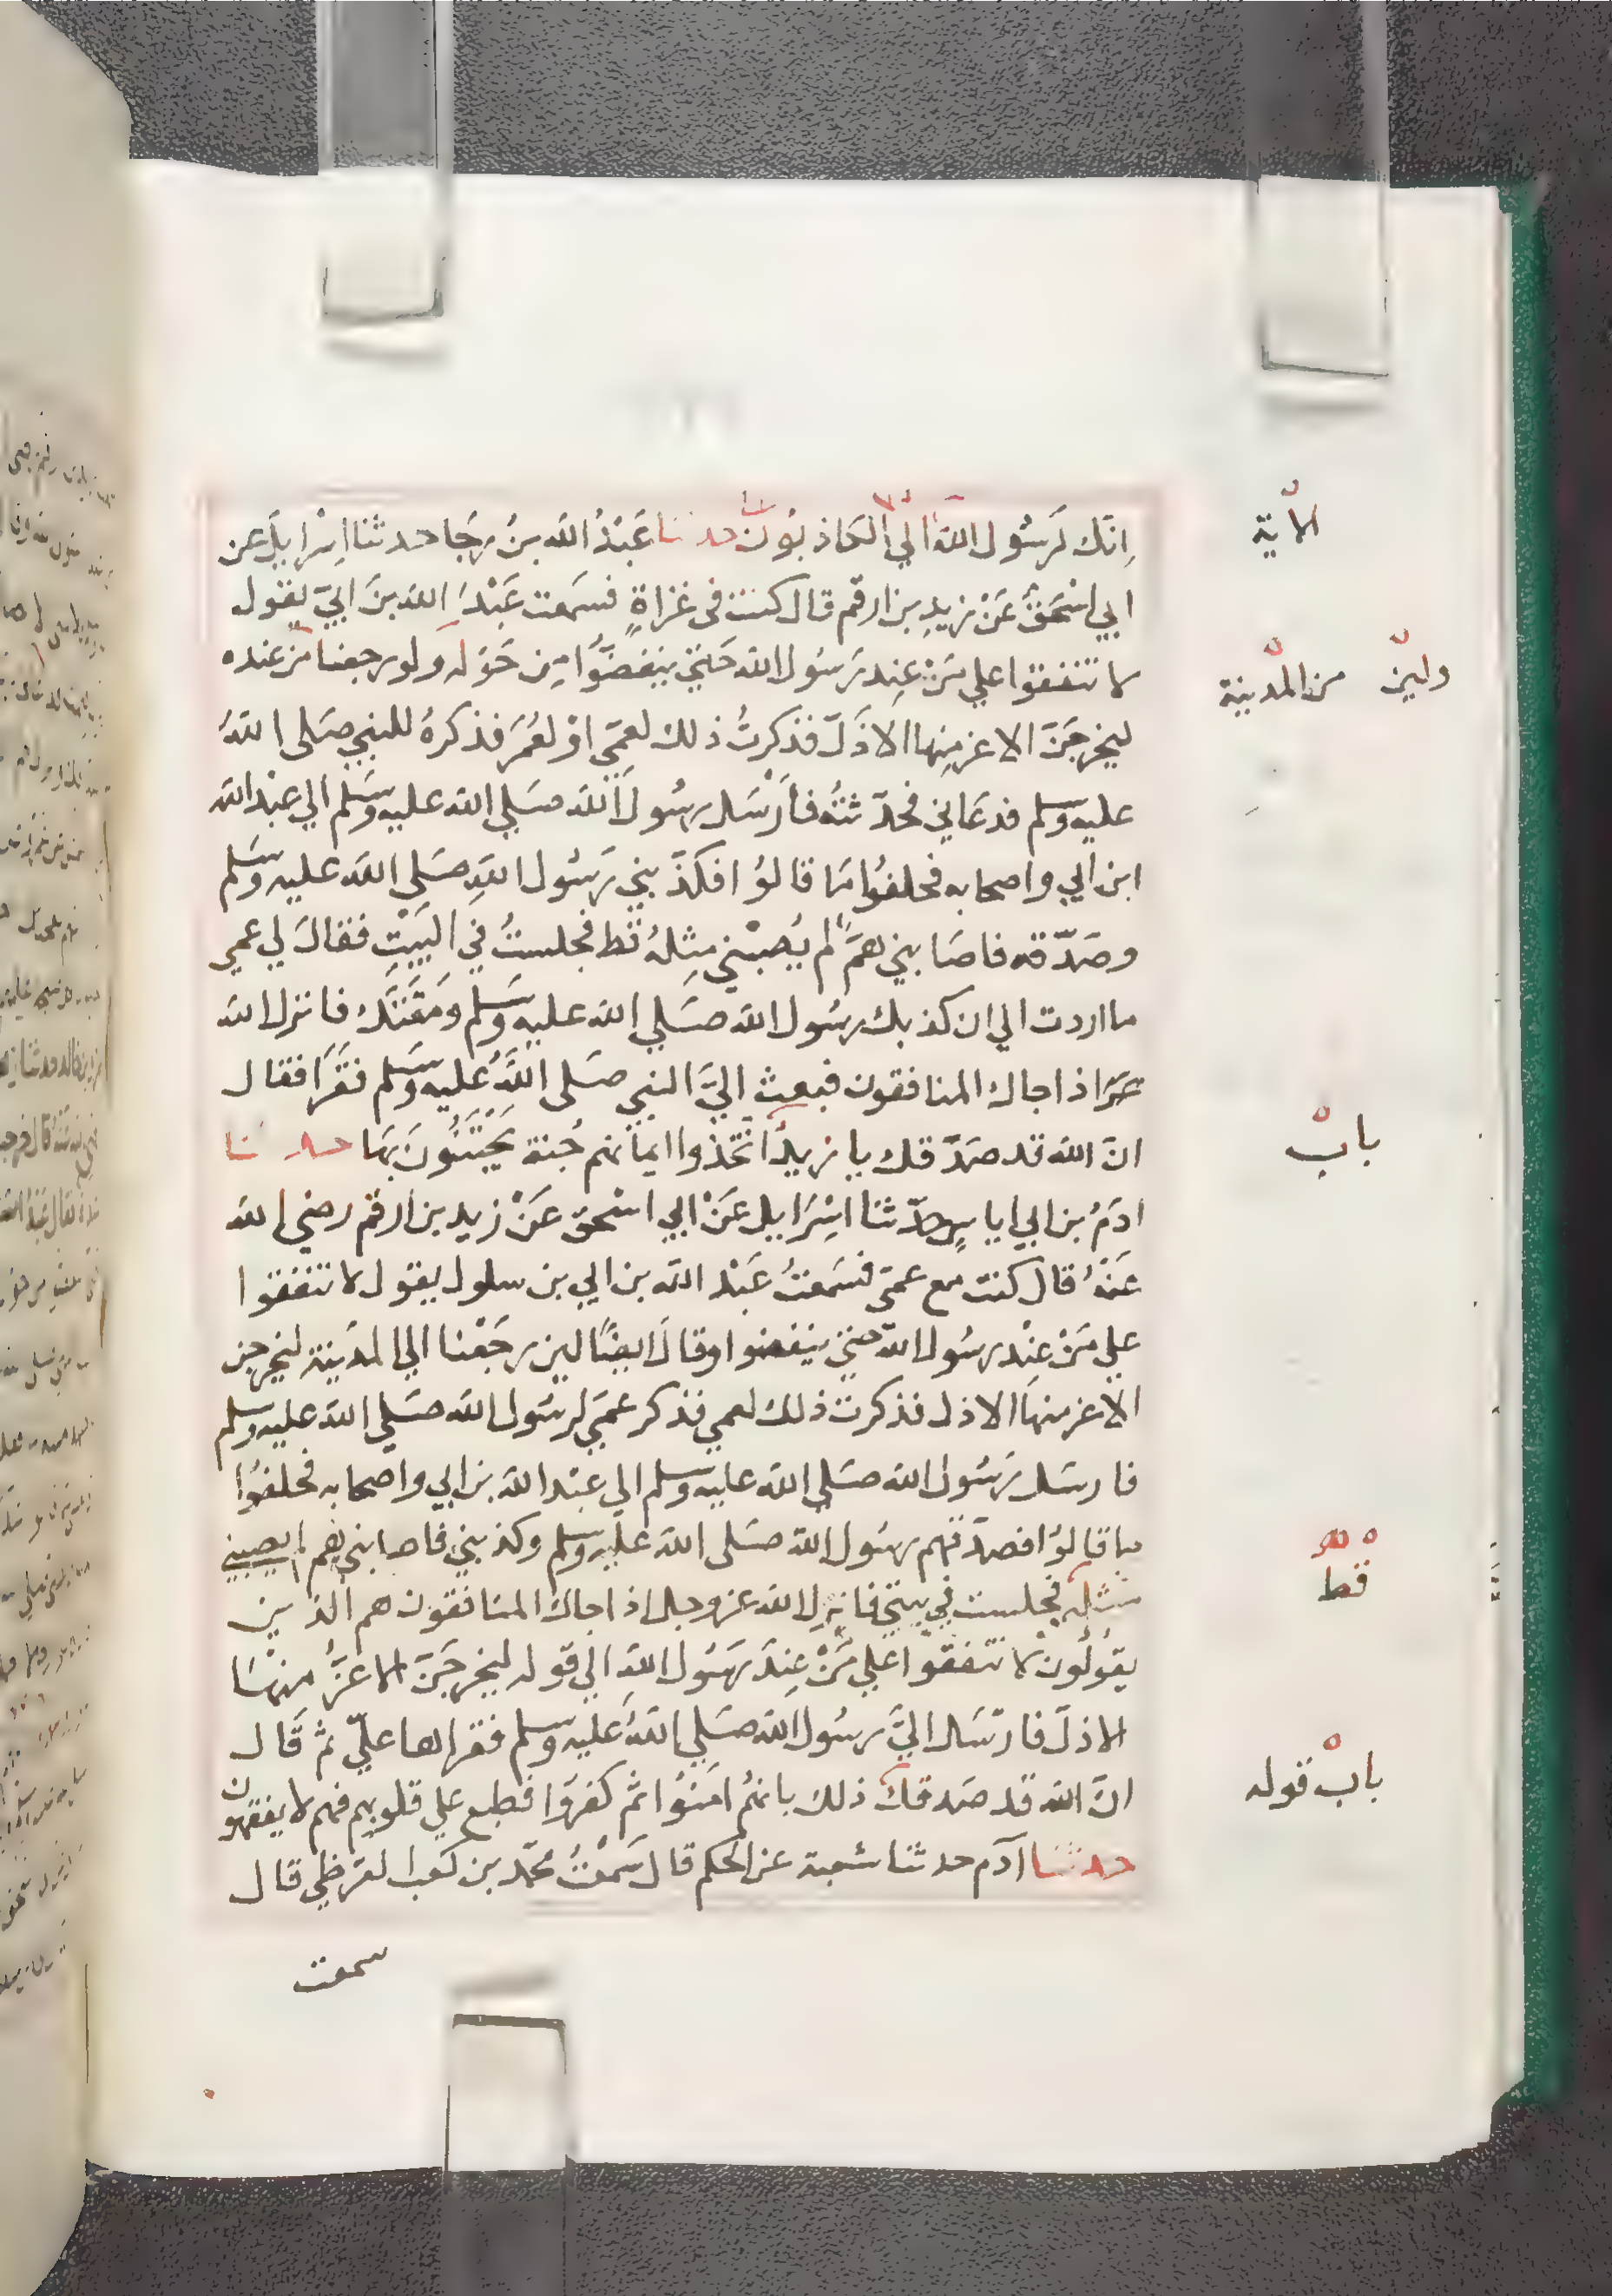 انّك لَرسُول الله الي الكاذبُون حدثنا عَبْدُ الله بنُ رجَا حدثنا اِسْرايل عن
ابي اسْحَقَ عَنْ زيدِ بن ارقم قال كنت فى غزاةٍ فسمعت عَبْدَ الله بنَ ابيّ يقول
لا تنفقوا علي مَنْ عِند رَسُول الله حَتي ينفضّوُا مِن حَوْله ولو رجعنا من عنده
ليخرجَنّ الاعز مِنها الاذَلّ فذكرتُ ذلك لعمِّي اوْ لعُمَرَ فذكرهُ للنبي صَلى اللهُ
عليه وسلم فدعَاني فحدّثتهُ فأرْسَل رسُول الله صَلي الله عليه وسَلم الي عبْد الله
ابن ابي واصحابه فحلفوُا مَا قالوُا فكذّبني رَسُول اللهِ صَلي الله عليه وسَلم
وصَدّقه فاصَابني همّ لم يُصبْني مِثلهُ قط فجلستُ في البَيْتِ فقالَ لي عمي
ما اردت الي ان كذبك رسُول الله صَلي الله عليه وسَلم ومَقتَك فانزل الله
عز اذا جاك المنافقون فبعث اليَّ النبي صَلى اللهُ عليه وسَلم فقَرَا فقال
انّ الله قد صَدّقك يا زيدُ اتّخذوا ايمانهم جُنة يَجْتَنُّونَ بهَا حدثنا
ادَمُ بن ابي اياسٍ حدّثنا اسْرَايل عَنْ ابي اسْحق عَنْ زيد بن ارقم رضي الله
عَنهُ قال كنت مع عمّي فسَمعتُ عَبْد الله بن ابي بن سلول يقول لا تنفقوا
علي مَنْ عِنْد رسُول الله حتي ينفضوا وقالَ ايضًا لين رجَعْنا الي المدَينة ليخرجن
الاعز منهَا الاذل فذكرت ذلك لعمي فذكر عمّي لرسُول الله صَلي الله عليه وسلم
فارسَل رَسُول الله صَلي الله عليه وسَلم الي عبْد الله بن ابي واصحابه فحلفوُا
ما قالوُا فصدّقهم رسُول الله صَلى الله عليه وسلم وكذبني فاصابني هم لم يصبني
مثله فجلست في بيتي فانزل الله عز وجل اذا جاك المنافقون هم الذين
يقولُون لا تنفقوا علي مَنْ عِندَ رَسُول اللهِ الي قوله ليخرجَنّ الاعَزُّ منهَا
الاذلَ فارسَل اليَّ رسُول الله صَلي اللهُ عليه وسلم فقراها عليّ ثم قَال
انَّ الله قد صَدقك ذلك بانهُم امَنوُا ثم كفرَوا فطبع علي قلوبهم فهم لا يفقهون
حدثنا آدم حدثنا شعبة عن الحكم قال سَمعْتُ محمّد بن كعب القرظي قال
سمعت
الاية
ولين من المدينة
بابٌ
قط
باب قوله